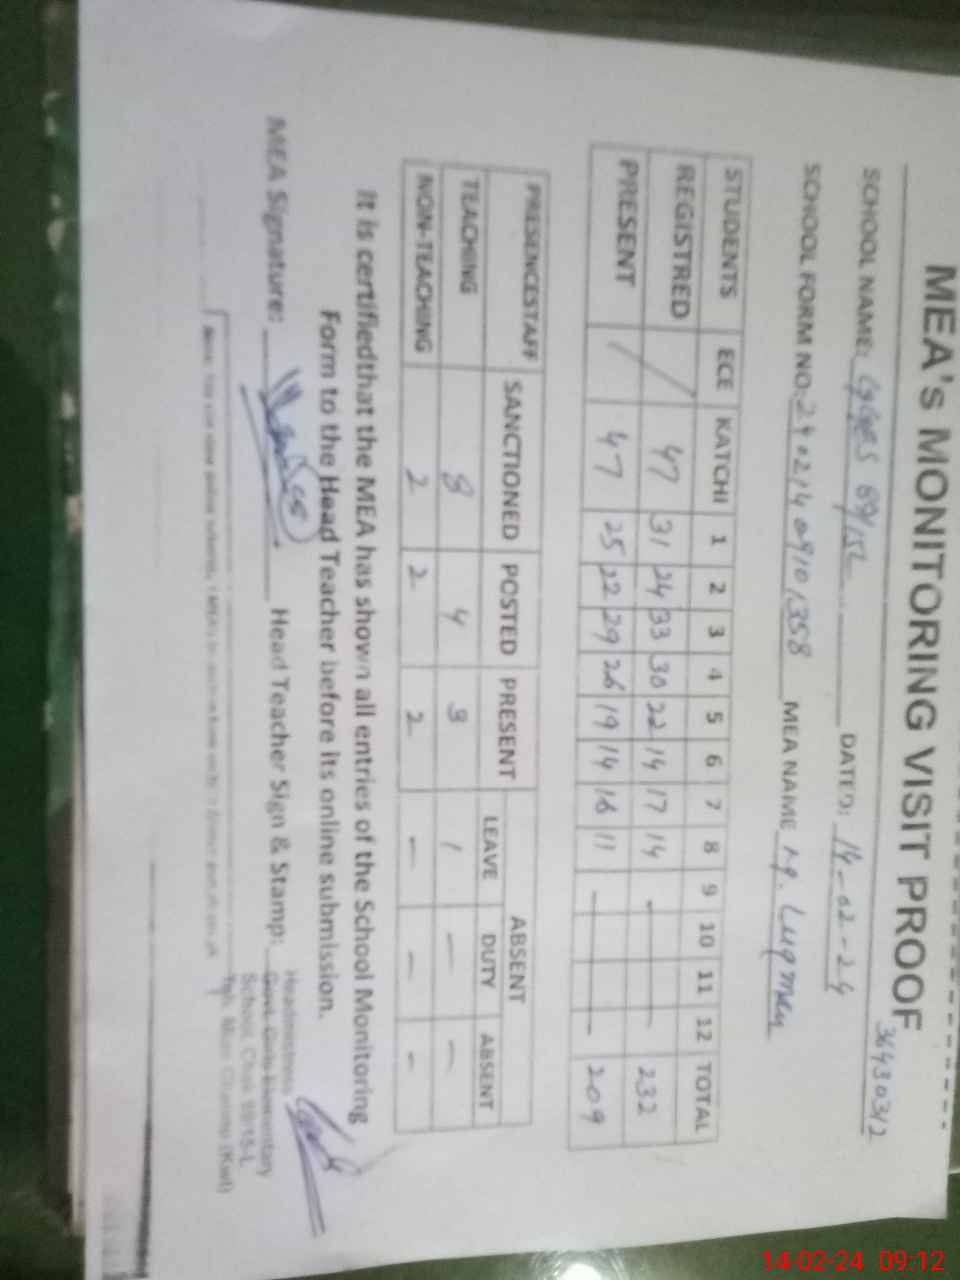 MEA's MONITORING VISIT PROOF
36430312
SCHOOL NAME: GGES 89/15L DATED: 14-02-24
SCHOOL FORM NO: 24021409101358 MEA NAME M. Luqman
STUDENTS ECE KATCHI 1 2 3 4 5 6 7 8 9 10 11 12 TOTAL
REGISTRED / 47 31 24 33 30 22 14 17 14 - 232
PRESENT / 47 25 22 29 26 19 14 16 11 - 209
PRESENCESTAFF SANCTIONED POSTED PRESENT ABSENT
LEAVE DUTY ABSENT
TEACHING 8 4 3 1 - -
NON-TEACHING 2 2 2 - - -
It is certifiedthat the MEA has shown all entries of the School Monitoring
Form to the Head Teacher before its online submission.
MEA Signature: Head Teacher Sign & Stamp:
Headmistress
Govt. Girls Elementary
School, Chak 89/15-L
14-02-24 09:12